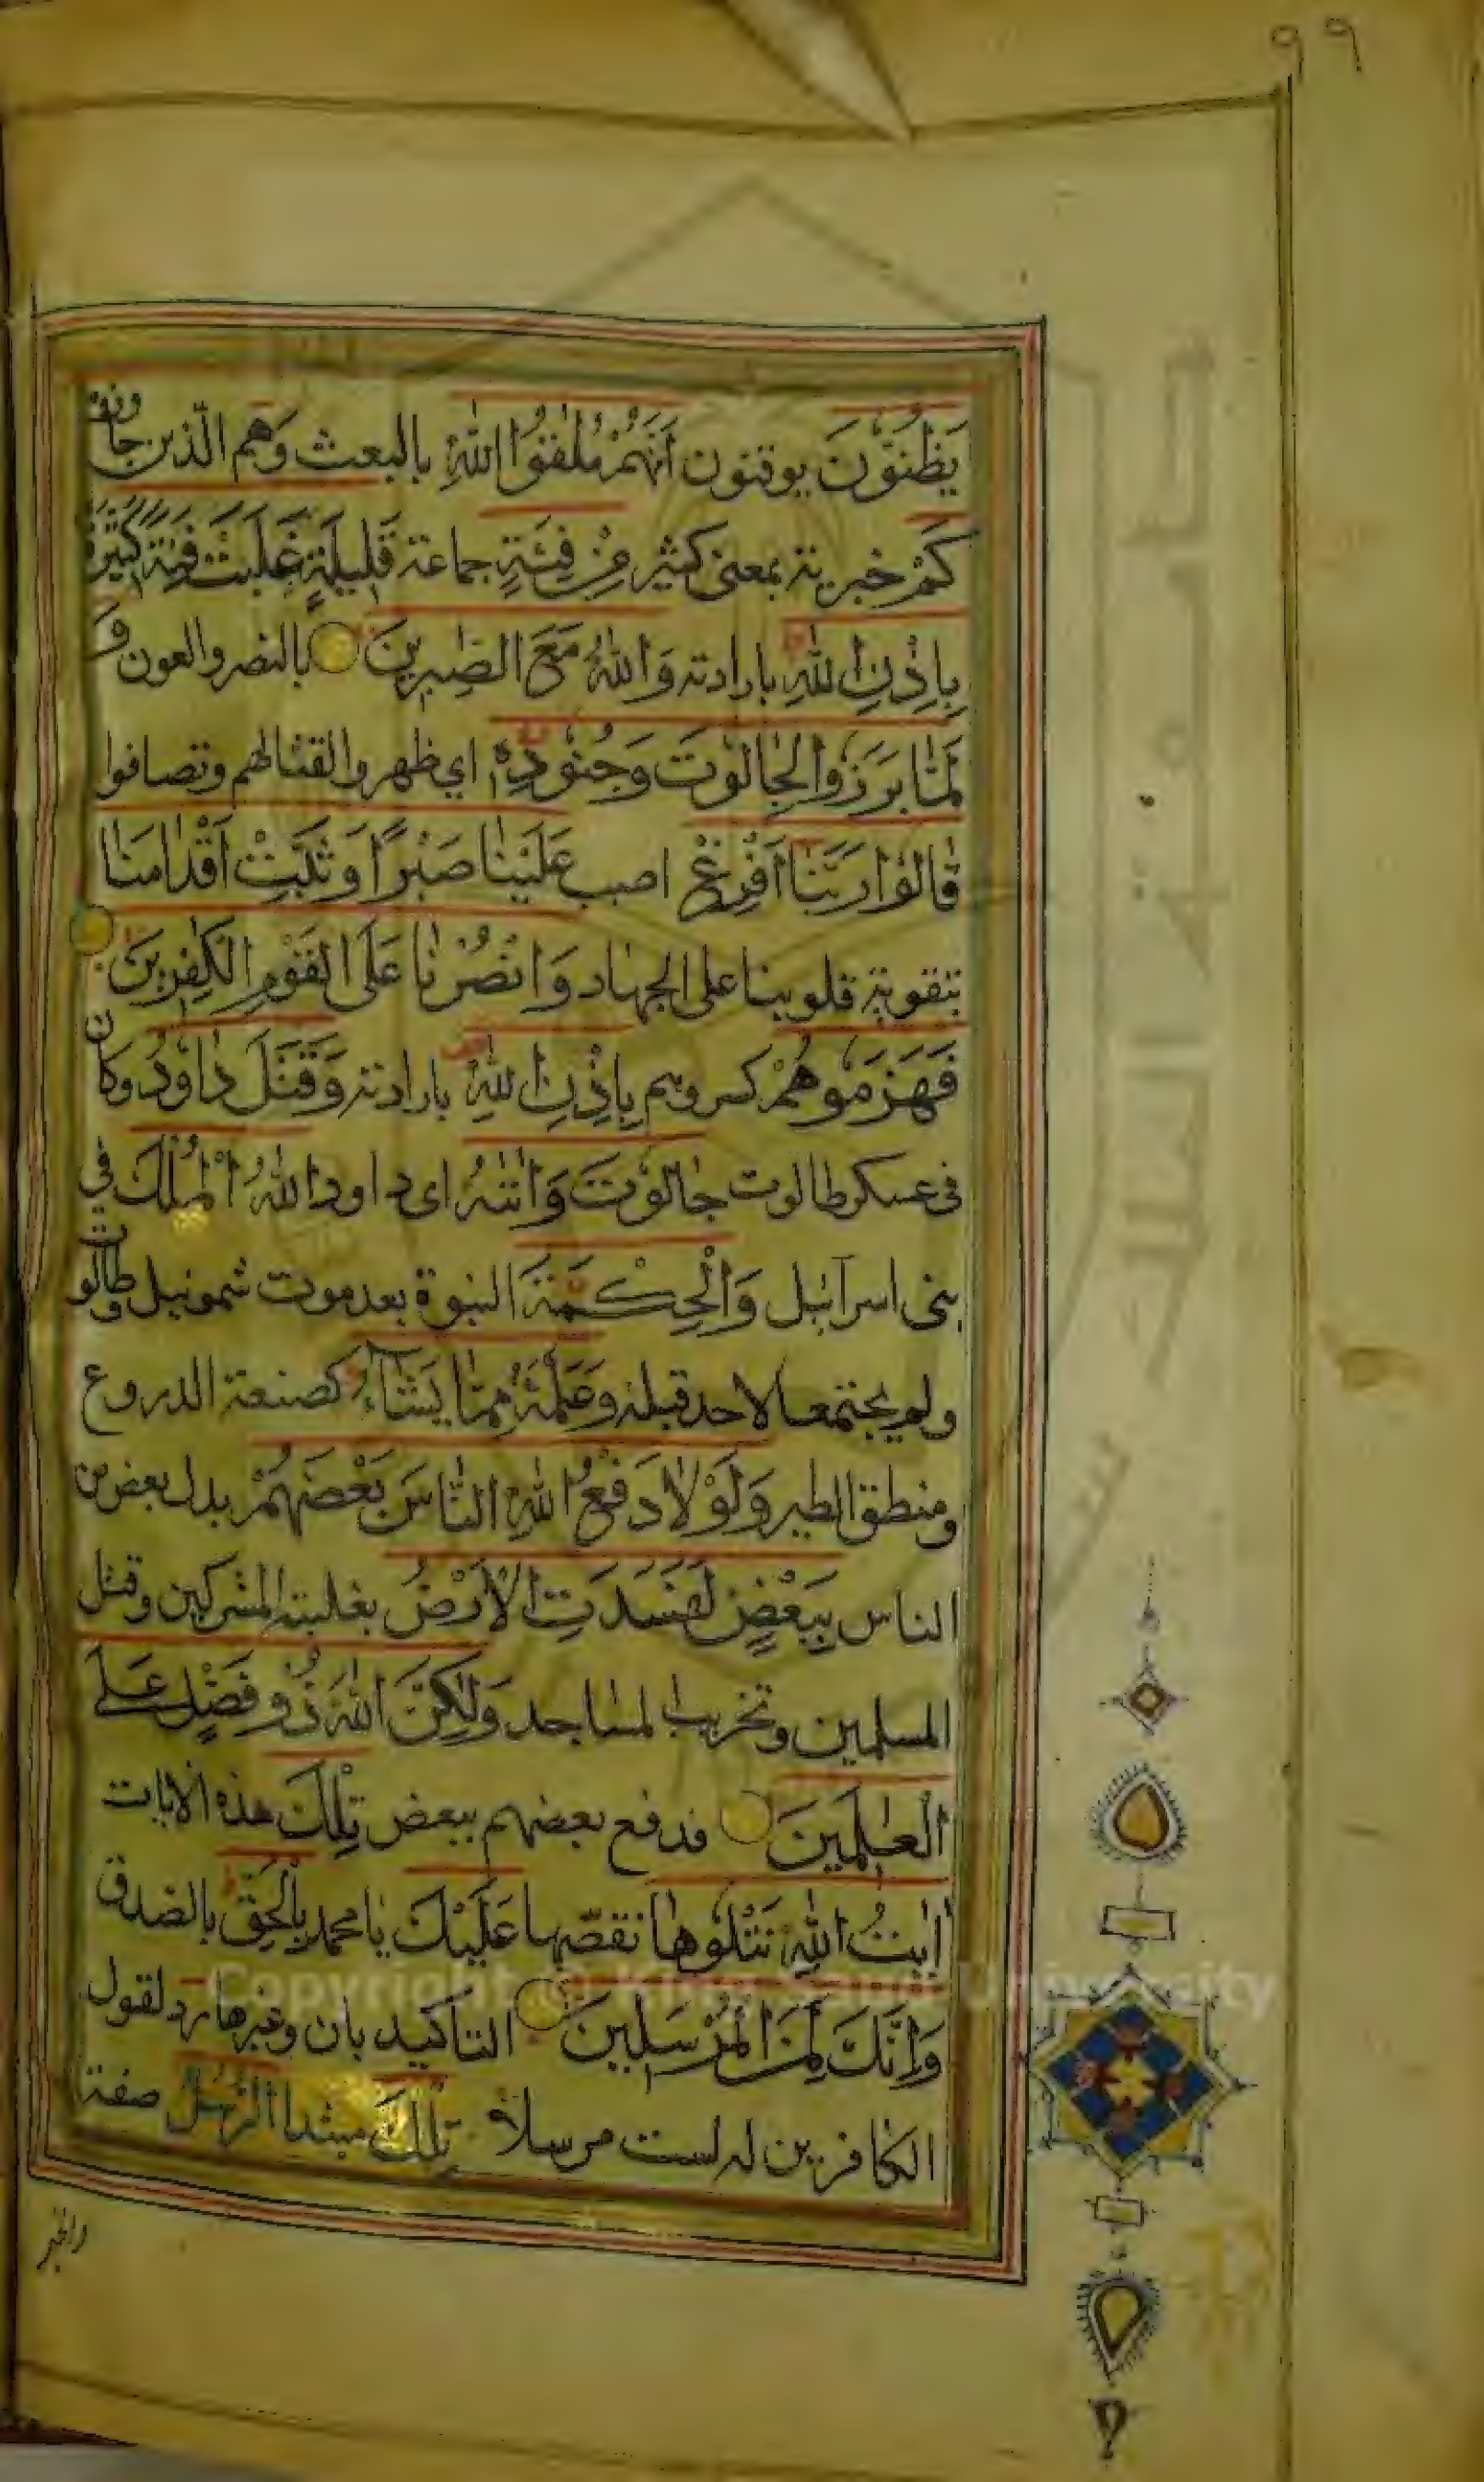 ٩٩
يَظُنُّونَ يوقنون اَنَّهُمْ مُلٰقُوا اللّٰهِ بالبعث وَهم الّذين جاوزوه
كَمْ خبرية بمعنى كثير مِنْ فِئَةٍ جماعة قَلٖيلَةٍ غَلَبَتْ فِئَةً كَثٖيرَةً
بِاِذْنِ اللّٰهِ بارادته وَاللّٰهُ مَعَ الصّٰبِرٖينَ بالنصر والعون وَ
لَمّٰا بَرَزُوا لِجٰالُوتَ وَجُنُودِهٖ اي ظهروا لقتالهم وتصافوا
قٰالُوا رَبَّنٰا اَفْرِغْ اصبب عَلَيْنٰا صَبْرًا وَثَبِّتْ اَقْدٰامَنٰا
بتقوية قلوبنا على الجهاد وَانْصُرْنٰا عَلَى الْقَوْمِ الْكٰفِرٖينَ
فَهَزَمُوهُمْ كسروهم بِاِذْنِ اللّٰهِ بارادته وَقَتَلَ دٰاوُدُ وكان
فى عسكر طالوت جٰالُوتَ وَاٰتٰيهُ اى داود اللّٰهُ الْمُلْكَ في
بنى اسرآئيل وَالْحِكْمَةَ النبوة بعد موت شمونيل وطالوت
ولم يجتمعا لاحد قبله وَعَلَّمَهُ مِمّٰا يَشَآءُ كصنعة الدروع
ومنطق الطير وَلَوْلٰا دَفْعُ اللّٰهِ النّٰاسَ بَعْضَهُمْ بدل بعض من
الناس بِبَعْضٍ لَفَسَدَتِ الْاَرْضُ بغلبة المشركين وقتل
المسلمين وتخريب المساجد وَلٰكِنَّ اللّٰهَ ذُو فَضْلٍ عَلَى
الْعٰلَمٖينَ فدفع بعضهم ببعض تِلْكَ هذه الآيات
اٰيٰتُ اللّٰهِ نَتْلُوهٰا نقصّها عَلَيْكَ يا محمد بِالْحَقِّ بالصدق
وَاِنَّكَ لَمِنَ الْمُرْسَلٖينَ التاكيد بان وغيرها رد لقول
الكافرين له لست مرسلا تِلْكَ مبتدا الرُّسُلُ صفة
والخبر
Copyright © King Saud University